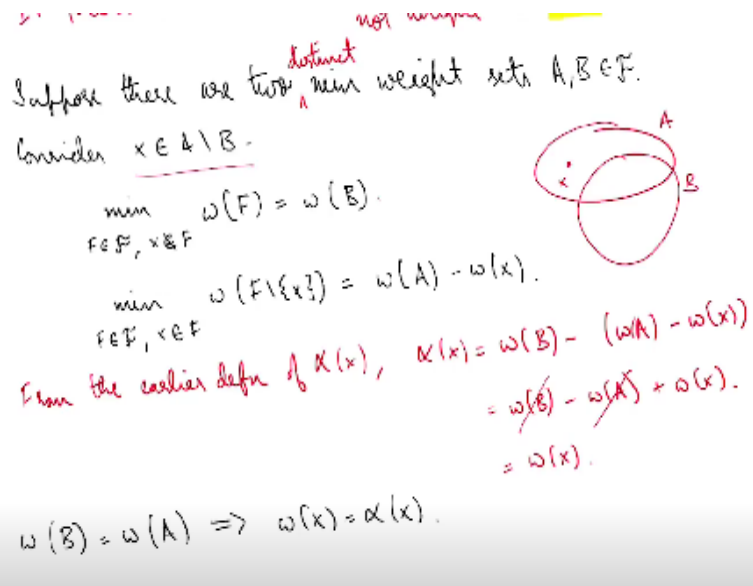 not unique
Suppose there are two distinct min weight sets A, B ∈ F.
Consider x ∈ A \ B.
A
x
B
min w(F) = w(B).
F∈F, x∉F
min w(F\{x}) = w(A) - w(x).
F∈F, x∈F
From the earlier defn of α(x), α(x) = w(B) - (w(A) - w(x))
= w(B) - w(A) + w(x).
= w(x).
w(B) = w(A) => w(x) = α(x).